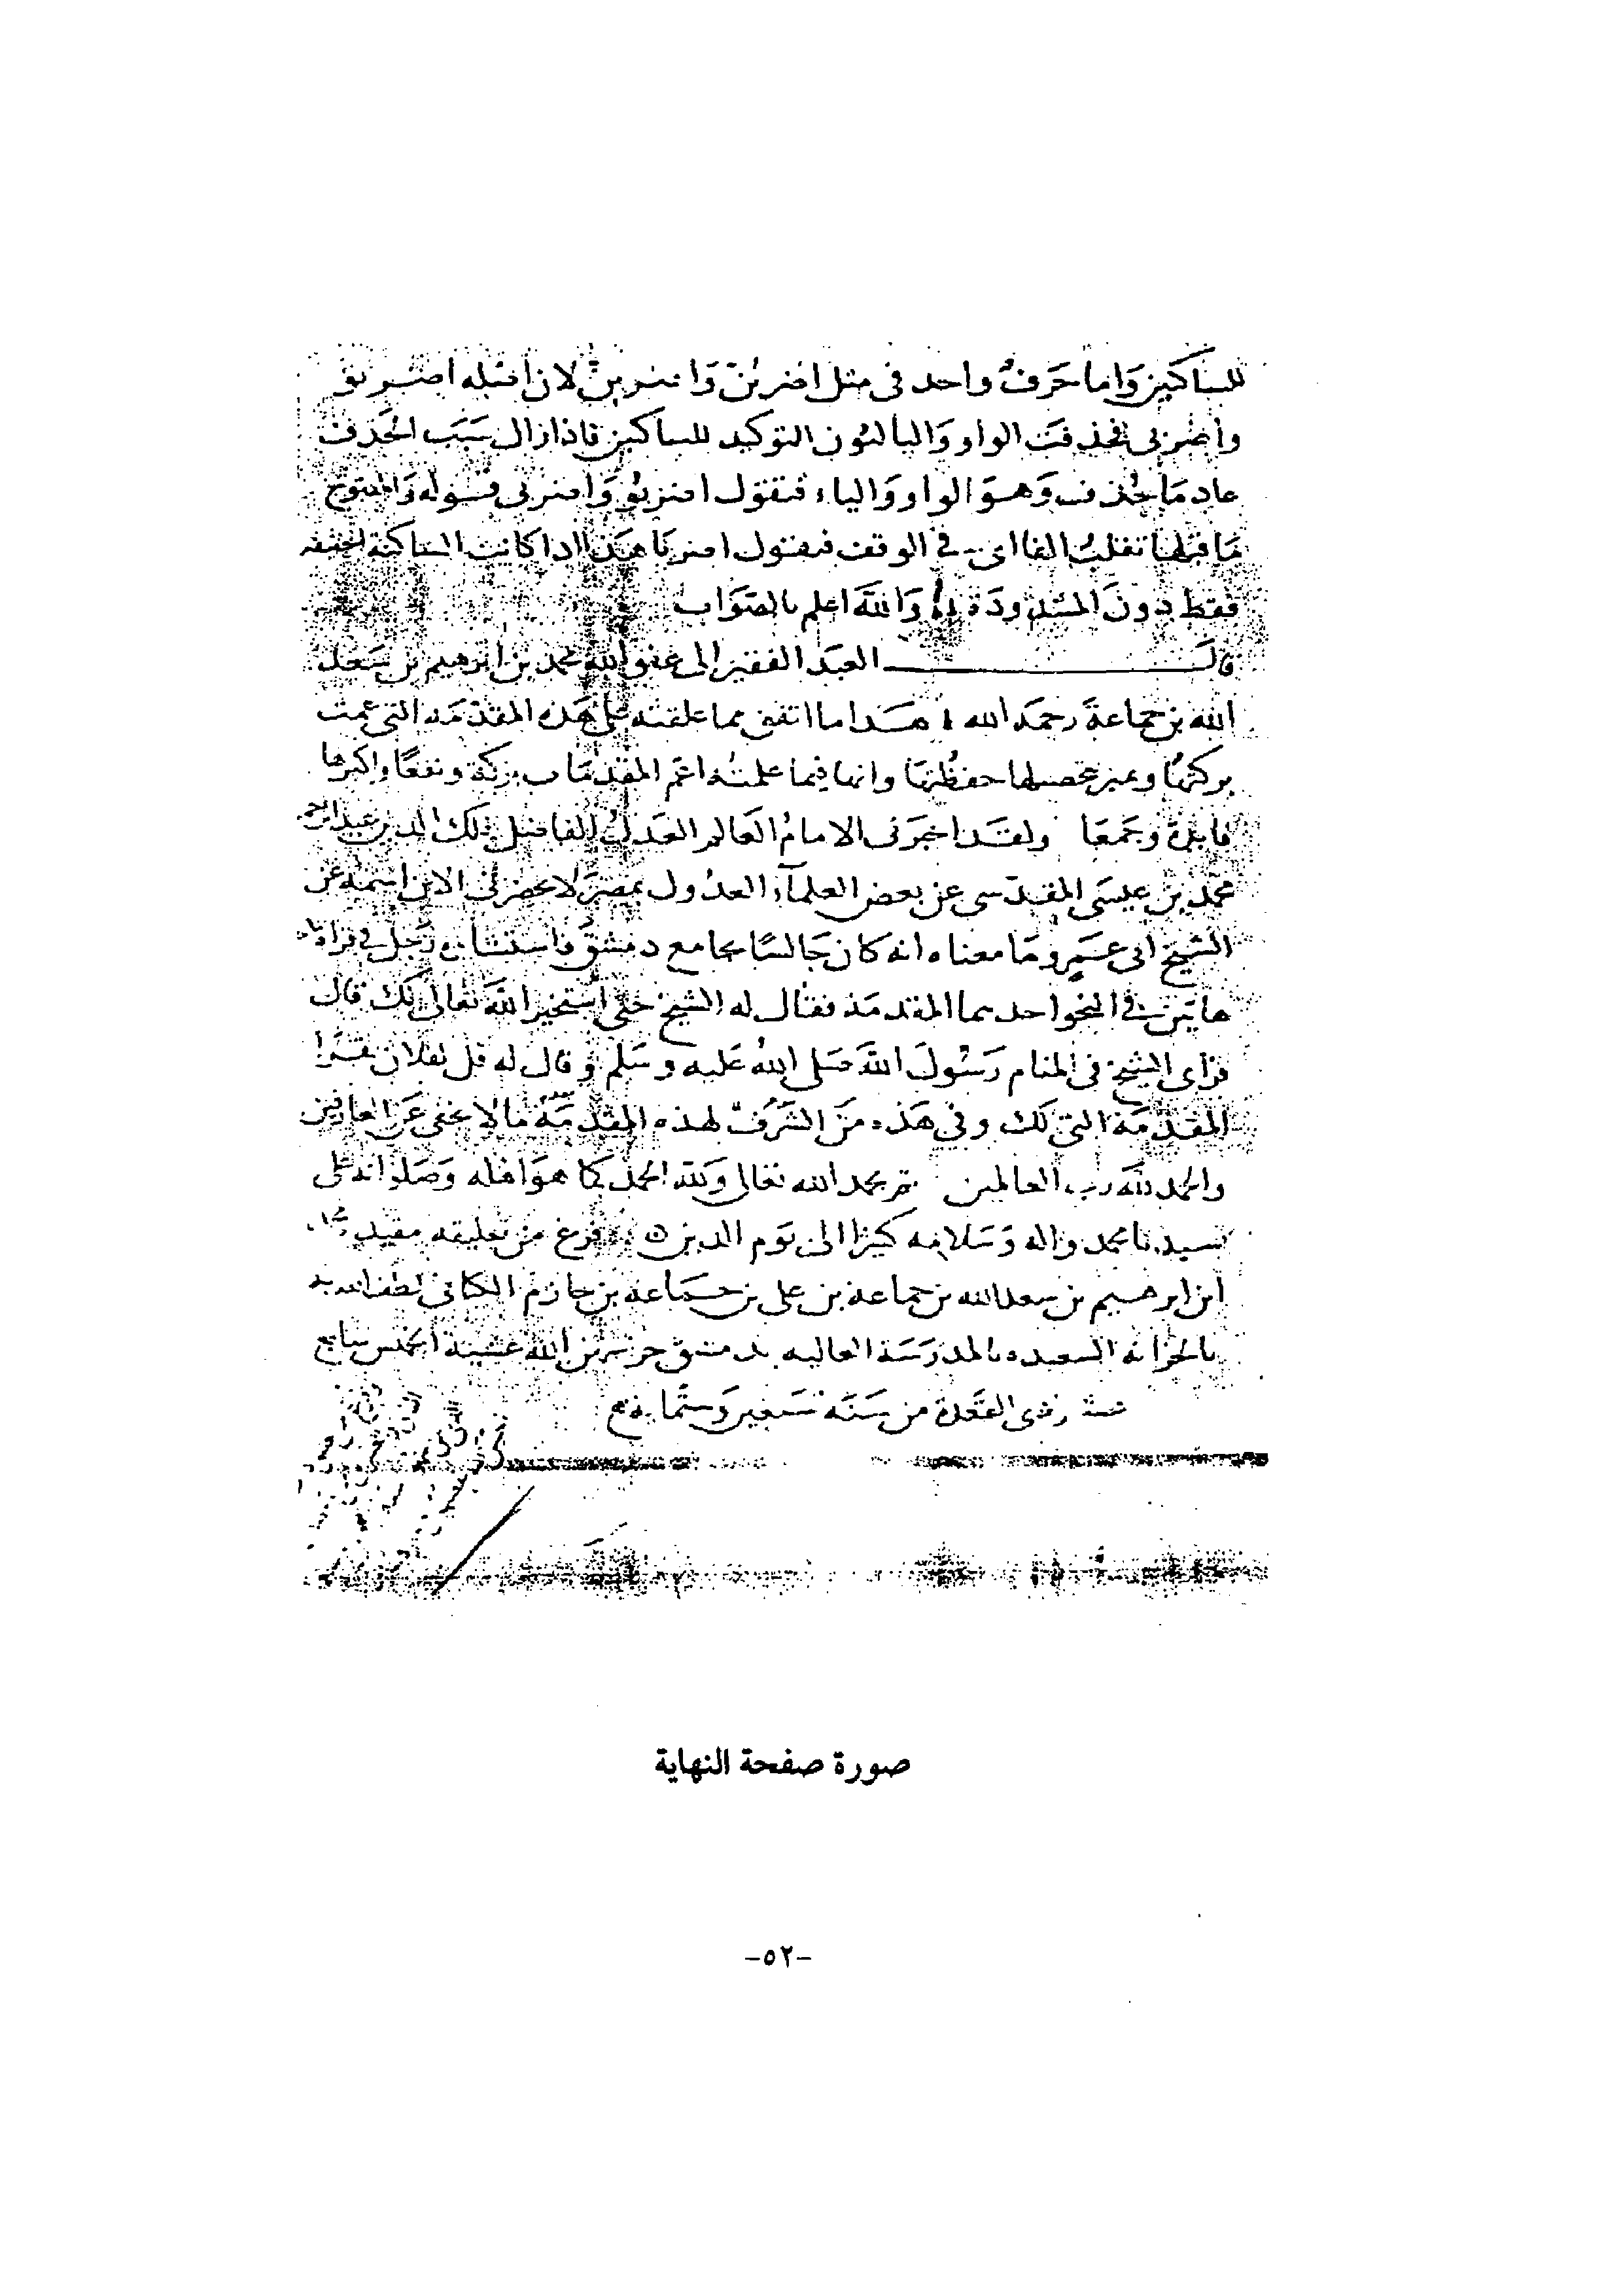 للساكنين وَاما حَرفٌ واحد فى مثل اضربُنْ وَاضربِنْ لان اصله اضربو
واضربى فحذفت الواو وَاليا لنون التوكيد للساكنين فاذا زال سَبَب الحَذف
عاد مَا حُذف وَهوَ الواو وَالياء فتقول اضربو وَاضربى قوله وَالمفتوح
مَا قبلها تقلبُ الفا اى فى الوقف فيقول اضربَا هذا اذا كانت الساكنة الخفيفه
فقط دونَ المشدودَة وَاللهَ اعلم بالصَوَاب
قال العبَد الفقير الى عفو الله محمد بن ابرهيم بن سَعد
الله بن جماعَةَ رحمَه الله هذا ما اتفق مما علقته على هَذه المقدمَه التى عمت
بركتها وانها فيما علمتُه اعَم المقدمَات بركة ونفعًا واكبرها
وجَمعَا ولقد اخبرَنى الامامُ العَالم العَدل الفاضل الدين عبد الرحمن
محمد بن عيسَى المقدسى عن بعض العلمآء العدُول بمصرَ لا يحضرنى الان اسمهُ عن
الشيخ ابى عَمرو مَا معناه انه كان جَالسًا بجامع دمشقَ فاستشاره رَجل فى قراة
هاتين فى النحو احدهما المقدمَة فقال له الشيخ حتى استخير اللهَ تعَالى لك قال
فرَاى الشيخ فى المنام رَسُولَ اللهَ صَلى اللهُ عَليه وسَلم وقال له قل لفلان يقرَا
المقدّمَة التى لك وفى هَذه منَ الشَرَف لهذه المقدمَة مَالا يخفى عَن العارفين
والحمد للهَ رب العالمين تم بحمد الله تعَالى وَلله الحمد كما هوَ اهله وَصَلواته على
سيدنا محمد واله وَسَلامه كثيرًا الى يَوم الدين فرغ من تعليقه محمد
ابن ابرهيم بن سعد الله بن جماعة بن على بن جَمَاعة بن حازم الكنانى لطف الله به
بالخزانة السعيده بالمدرَسَة العاليه بدمشق حرسهَا اللهُ عَشية الخميس سَابع
ذى القعَدة من سَنَة تسَعين وَستمايه
صورة صفحة النهاية
-٥٢-